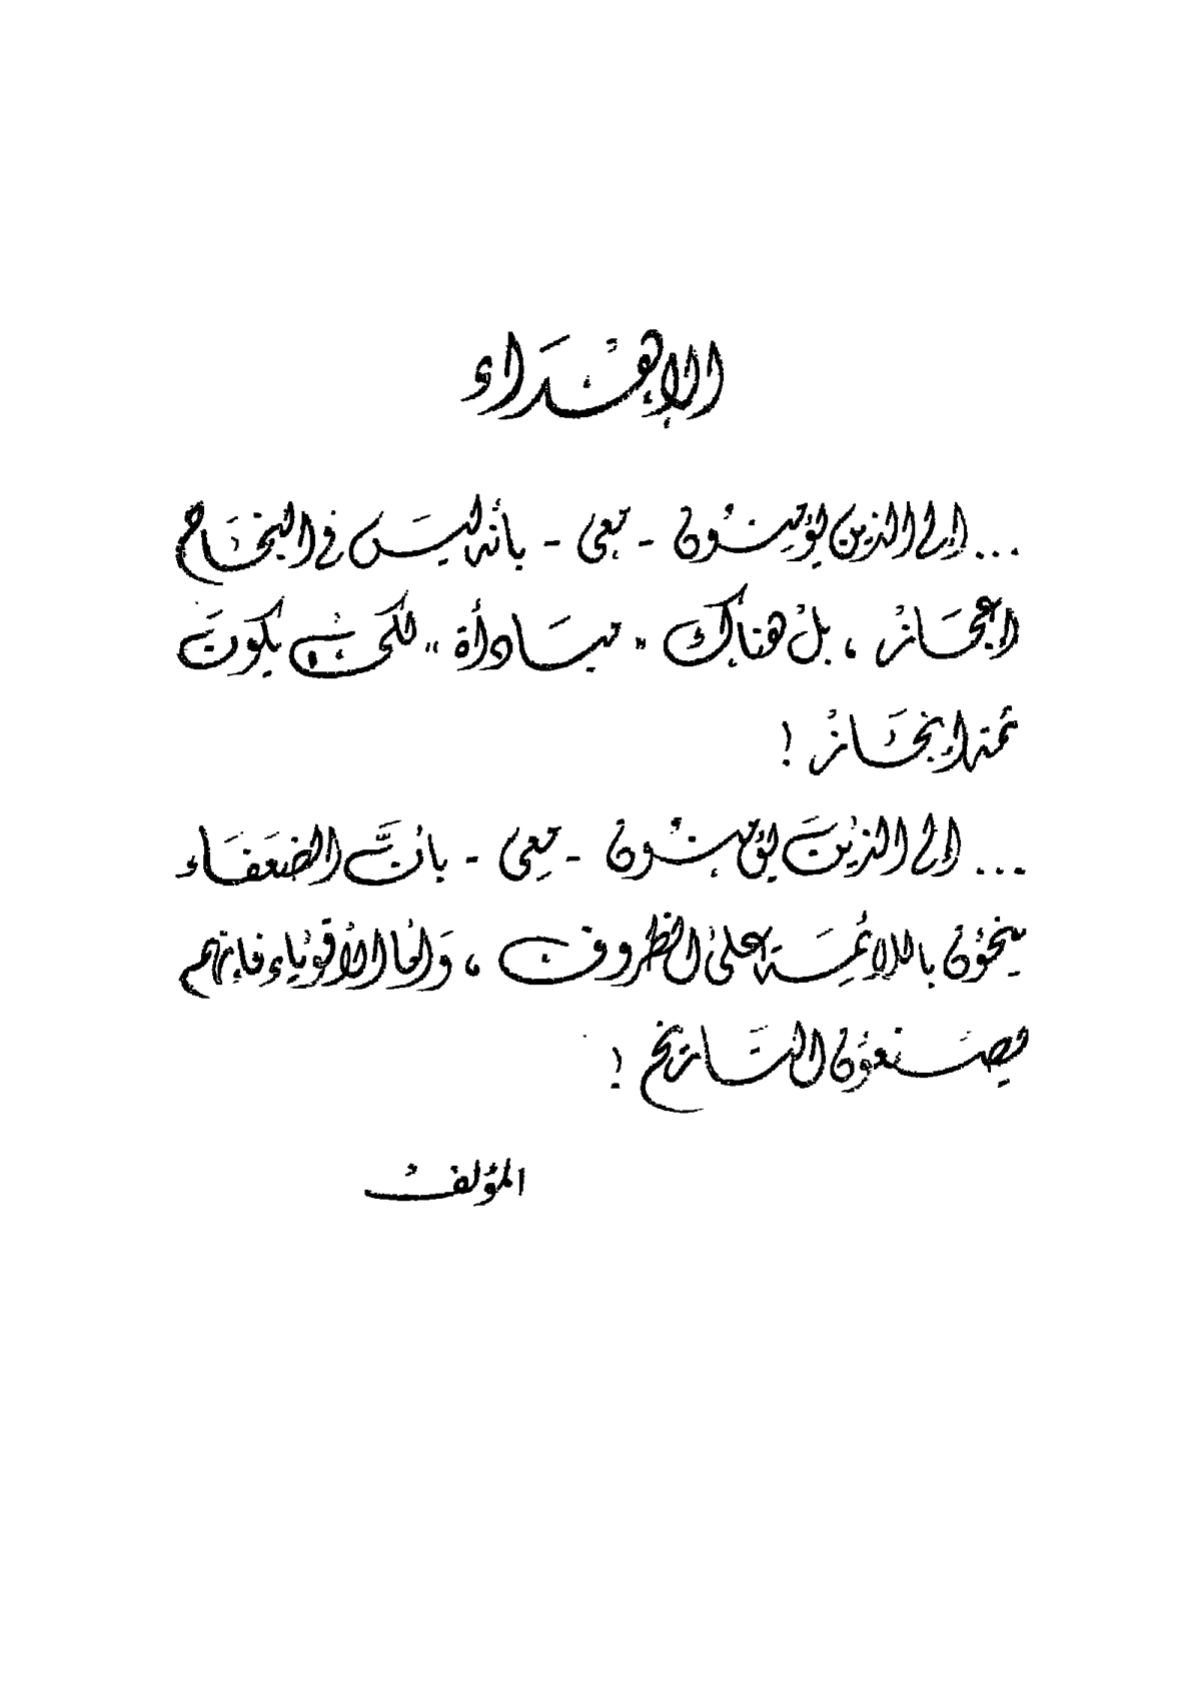 الإهْدَاء
... إلى الذين يؤمِنُون - معِى - بأنه ليسَ في النجَاح
إعجَازْ ، بلْ هنَاك " مبَادأة " لكىْ يكونَ
ثمة إنجَازْ !
... إلى الذيْنَ يؤمنُون - معِى - بأنَّ الضعَفَاء
ينحُوْن باللائمِة على الظروف ، وَأمَا الأقويَاء فإنهم
يصنعوُن التَاريخ !
المؤلفْ